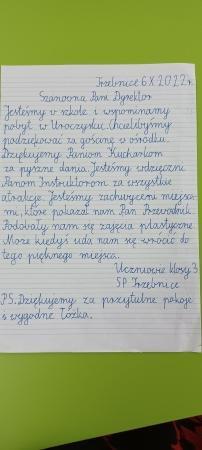 Trzebnice 6 X 2022r.
Szanowna Pani Dyrektor
Jesteśmy w szkole i wspominamy
pobyt w Uroczysku. Chcielibyśmy
podziękować za gościnę w ośrodku.
Dziękujemy Paniom Kucharkom
za pyszne dania. Jesteśmy wdzięczni
Panom Instruktorom za wszystkie
atrakcje. Jesteśmy zachwyceni miejsca-
mi, które pokazał nam Pan Przewodnik.
Podobały nam się zajęcia plastyczne.
Może kiedyś uda nam się wrócić do
tego pięknego miejsca.
Uczniowie klasy 3
SP Trzebnice
PS. Dziękujemy za przytulne pokoje
i wygodne łóżka.